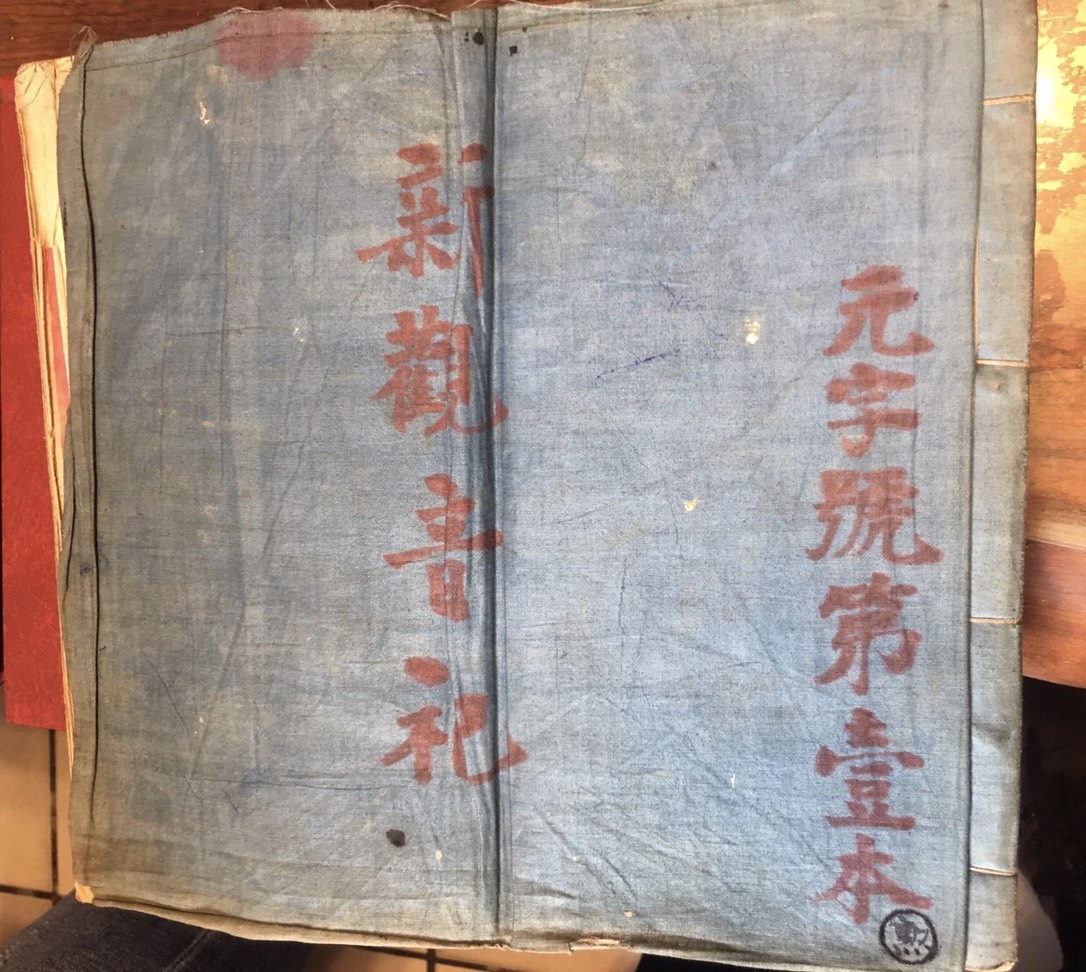 元字號第壹本
新觀音祀